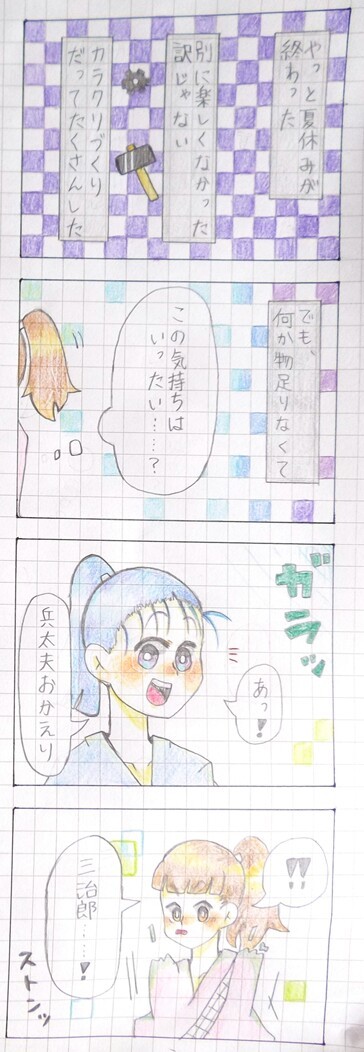 やっと夏休みが
終わった
別に楽しくなかった
訳じゃない
カラクリづくり
だってたくさんした
でも、
何か物足りなくて
この気持ちは
いったい……?
ガラッ
あっ!
兵太夫おかえり
!!
三治郎……!
ストンッ